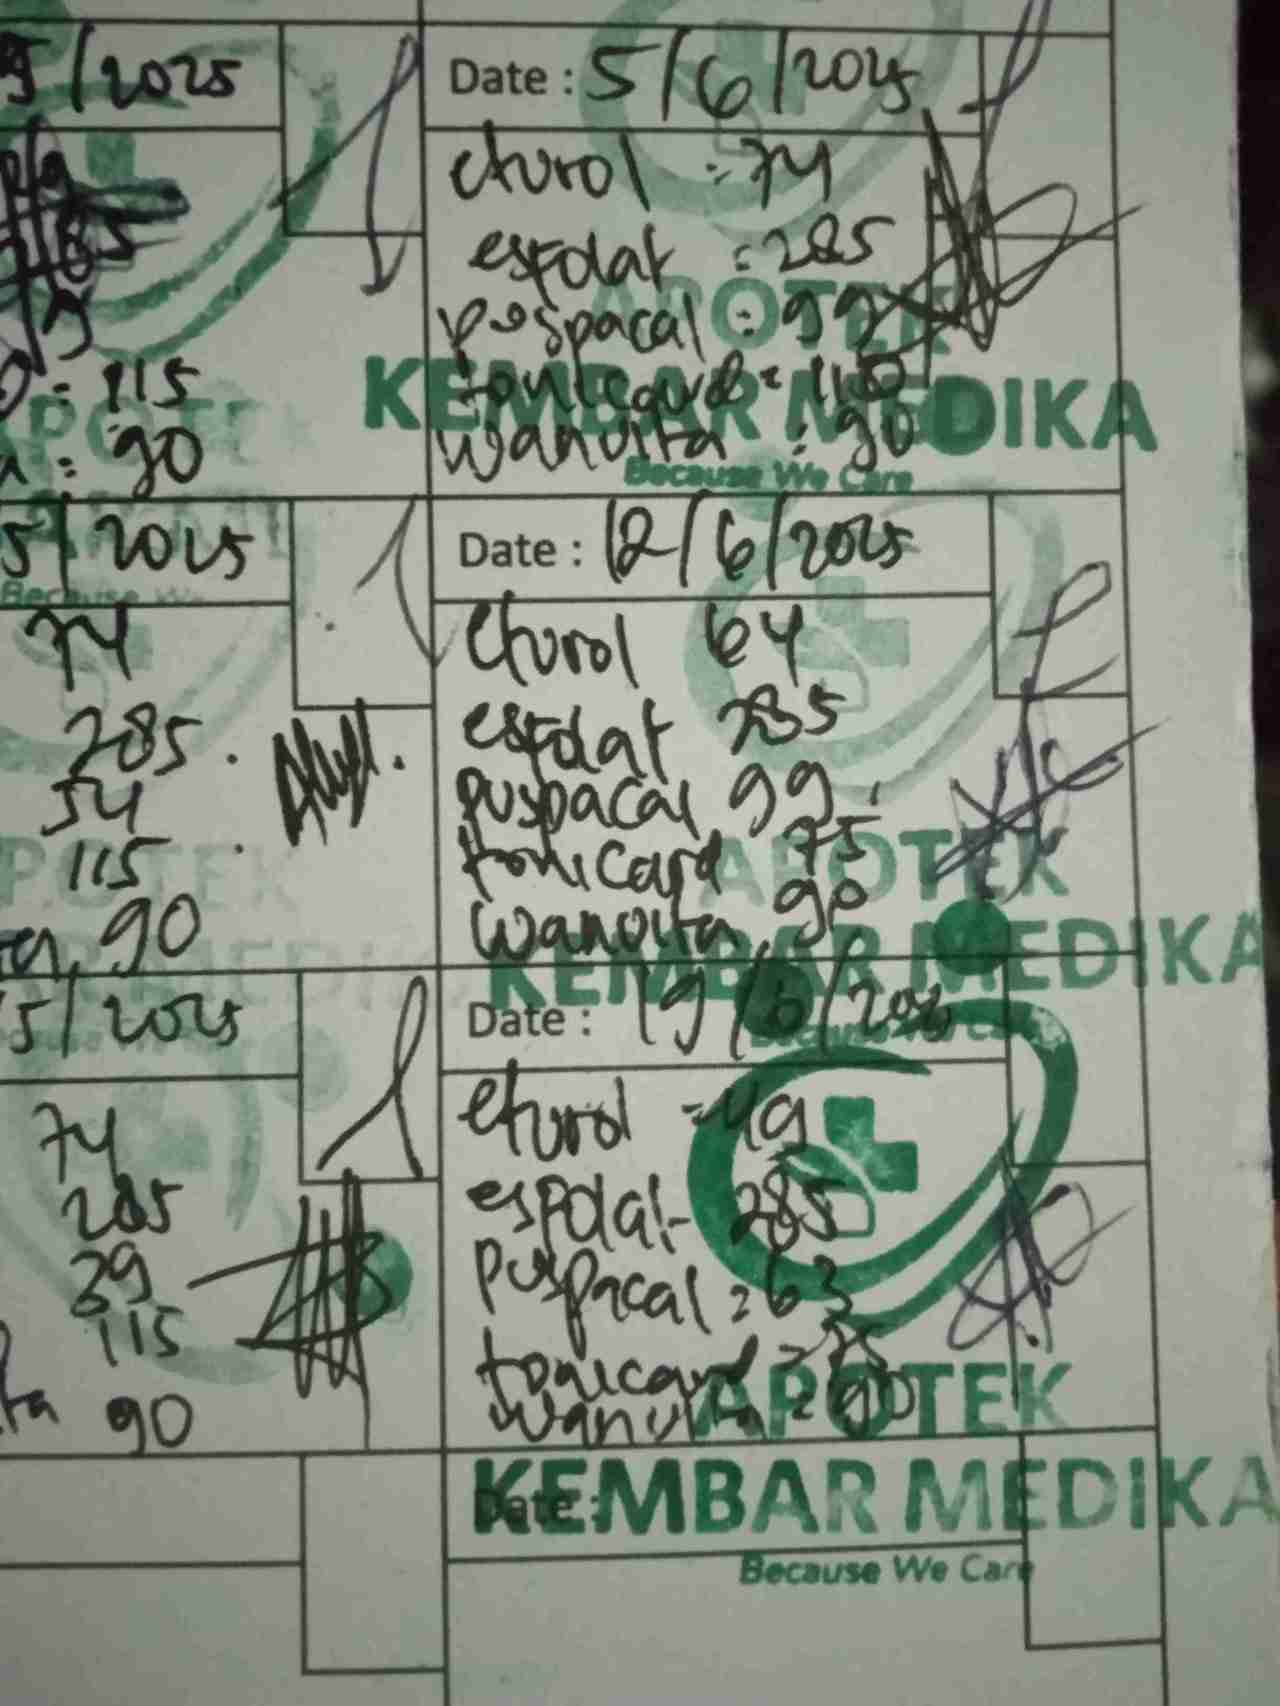 5/2025
115
90
5/2025
74
285
54
115
90
5/2025
74
285
39
115
ta 90
Date : 5/6/2025
eturol : 74
esfolat : 285
puspacal : 99
tonicard : 110
wanvita : 90
APOTEK
KEMBAR MEDIKA
Because We Care
Date : 12/6/2025
eturol 64
esfolat 285
puspacal 99
tonicard 75
wanvita 90
APOTEK
KEMBAR MEDIKA
Date : 19/6/2025
eturol = 49
esfolat - 285
puspacal = 63
tonicard = 75
wanvita = 90
APOTEK
KEMBAR MEDIKA
Date :
Because We Care